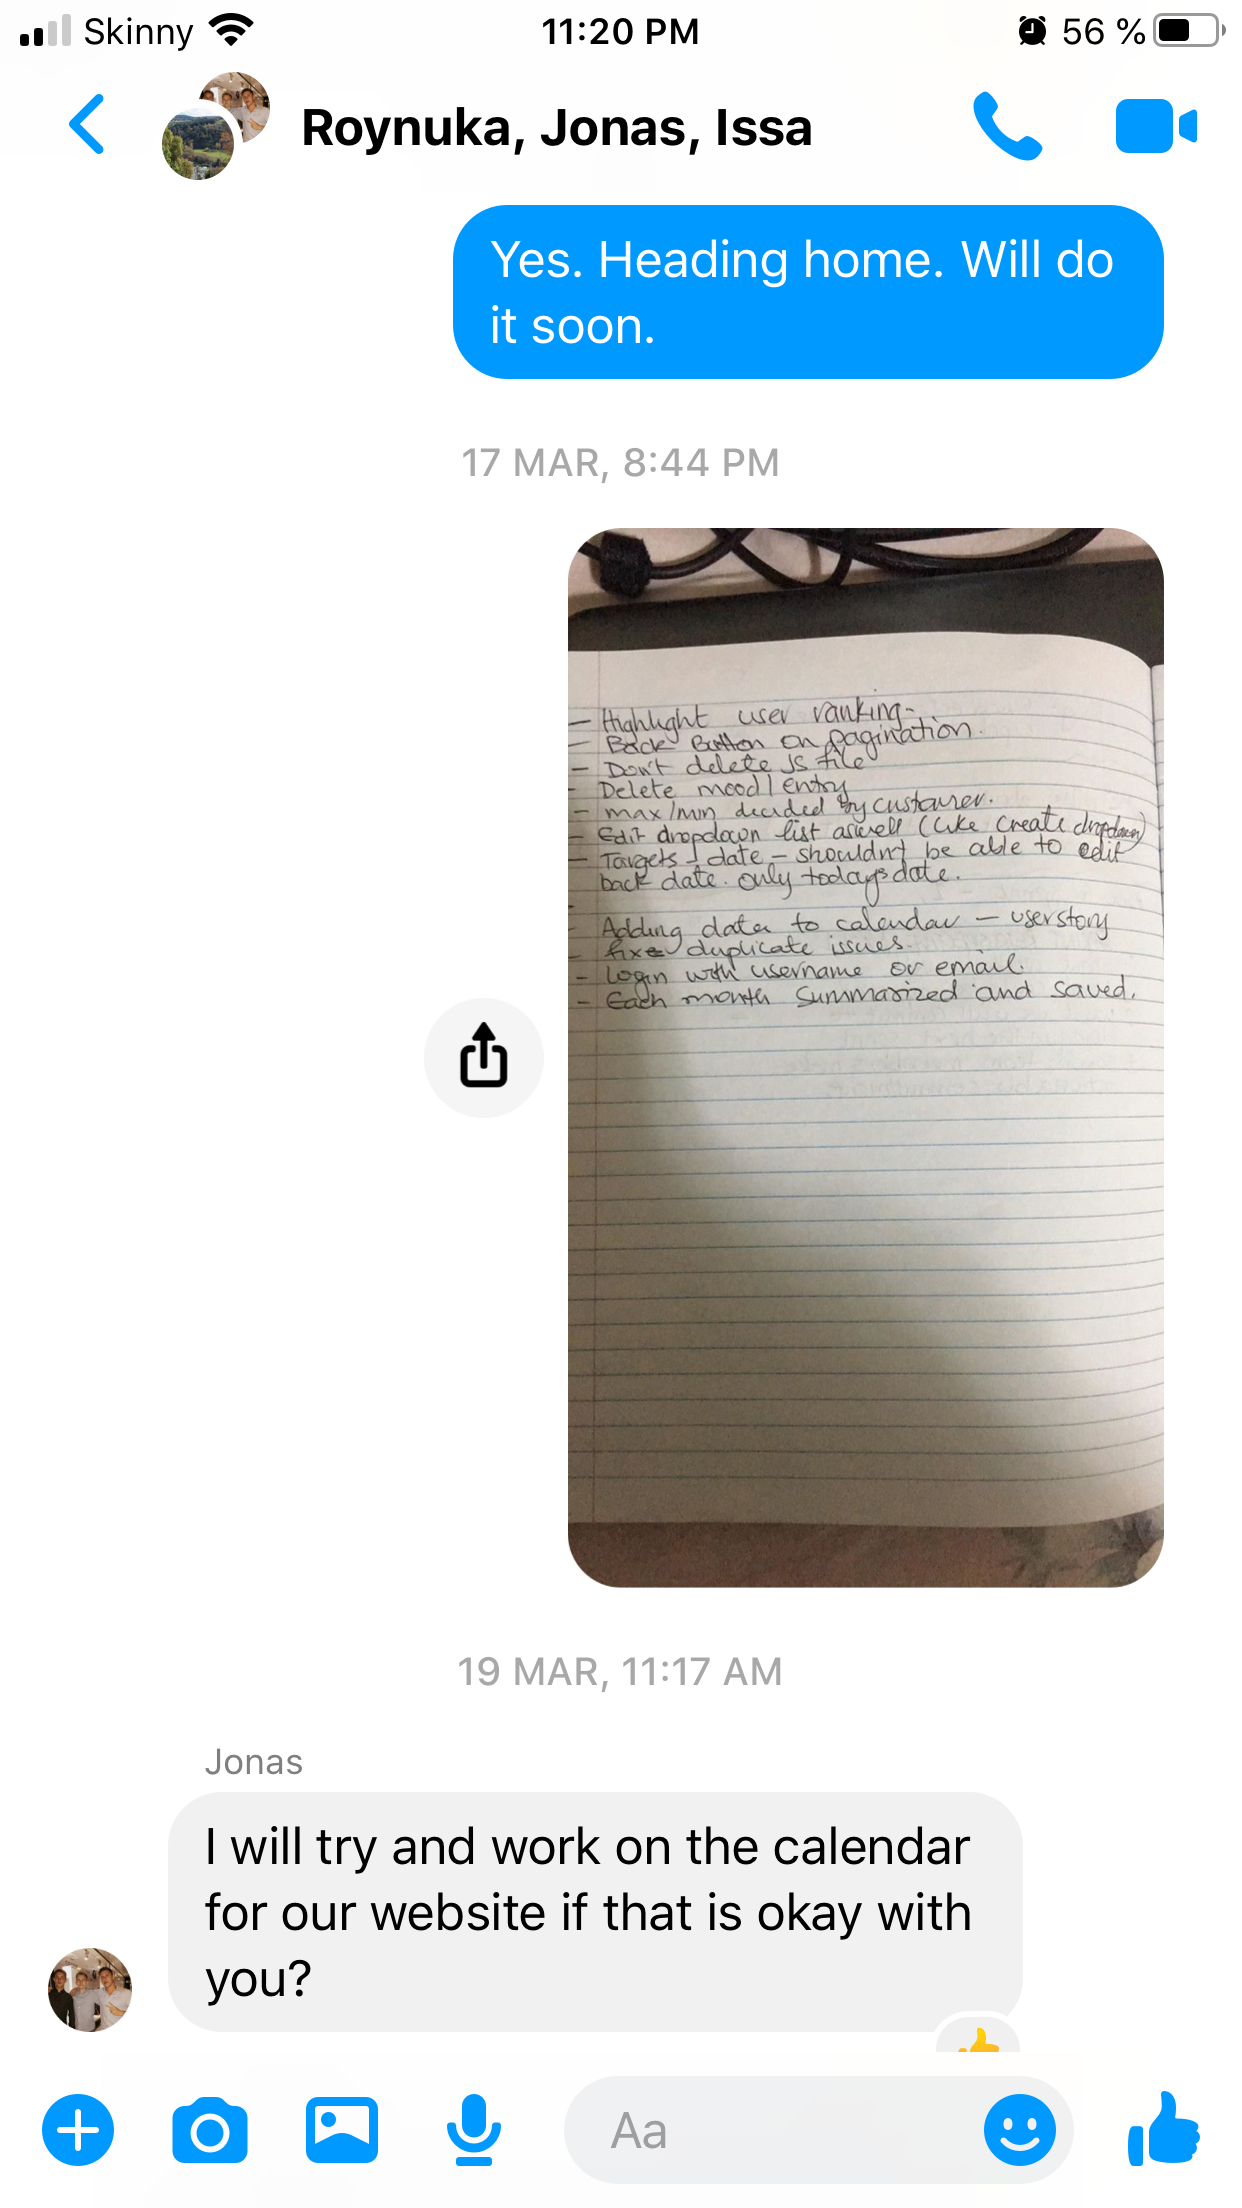 Skinny 11:20 PM 56 %
Roynuka, Jonas, Issa
Yes. Heading home. Will do
it soon.
17 MAR, 8:44 PM
- Highlight user ranking-
- Back Button on pagination.
- Don't delete JS file
- Delete mood / entry
- max/min decided by customer.
- Edit dropdown list aswell (like create dropdown)
- Targets date - shouldn't be able to edit
back date. only todays date.
- Adding data to calendar - userstory
- fixe duplicate issues.
- Login with username or email.
- Each month summarized and saved.
19 MAR, 11:17 AM
Jonas
I will try and work on the calendar
for our website if that is okay with
you?
Aa